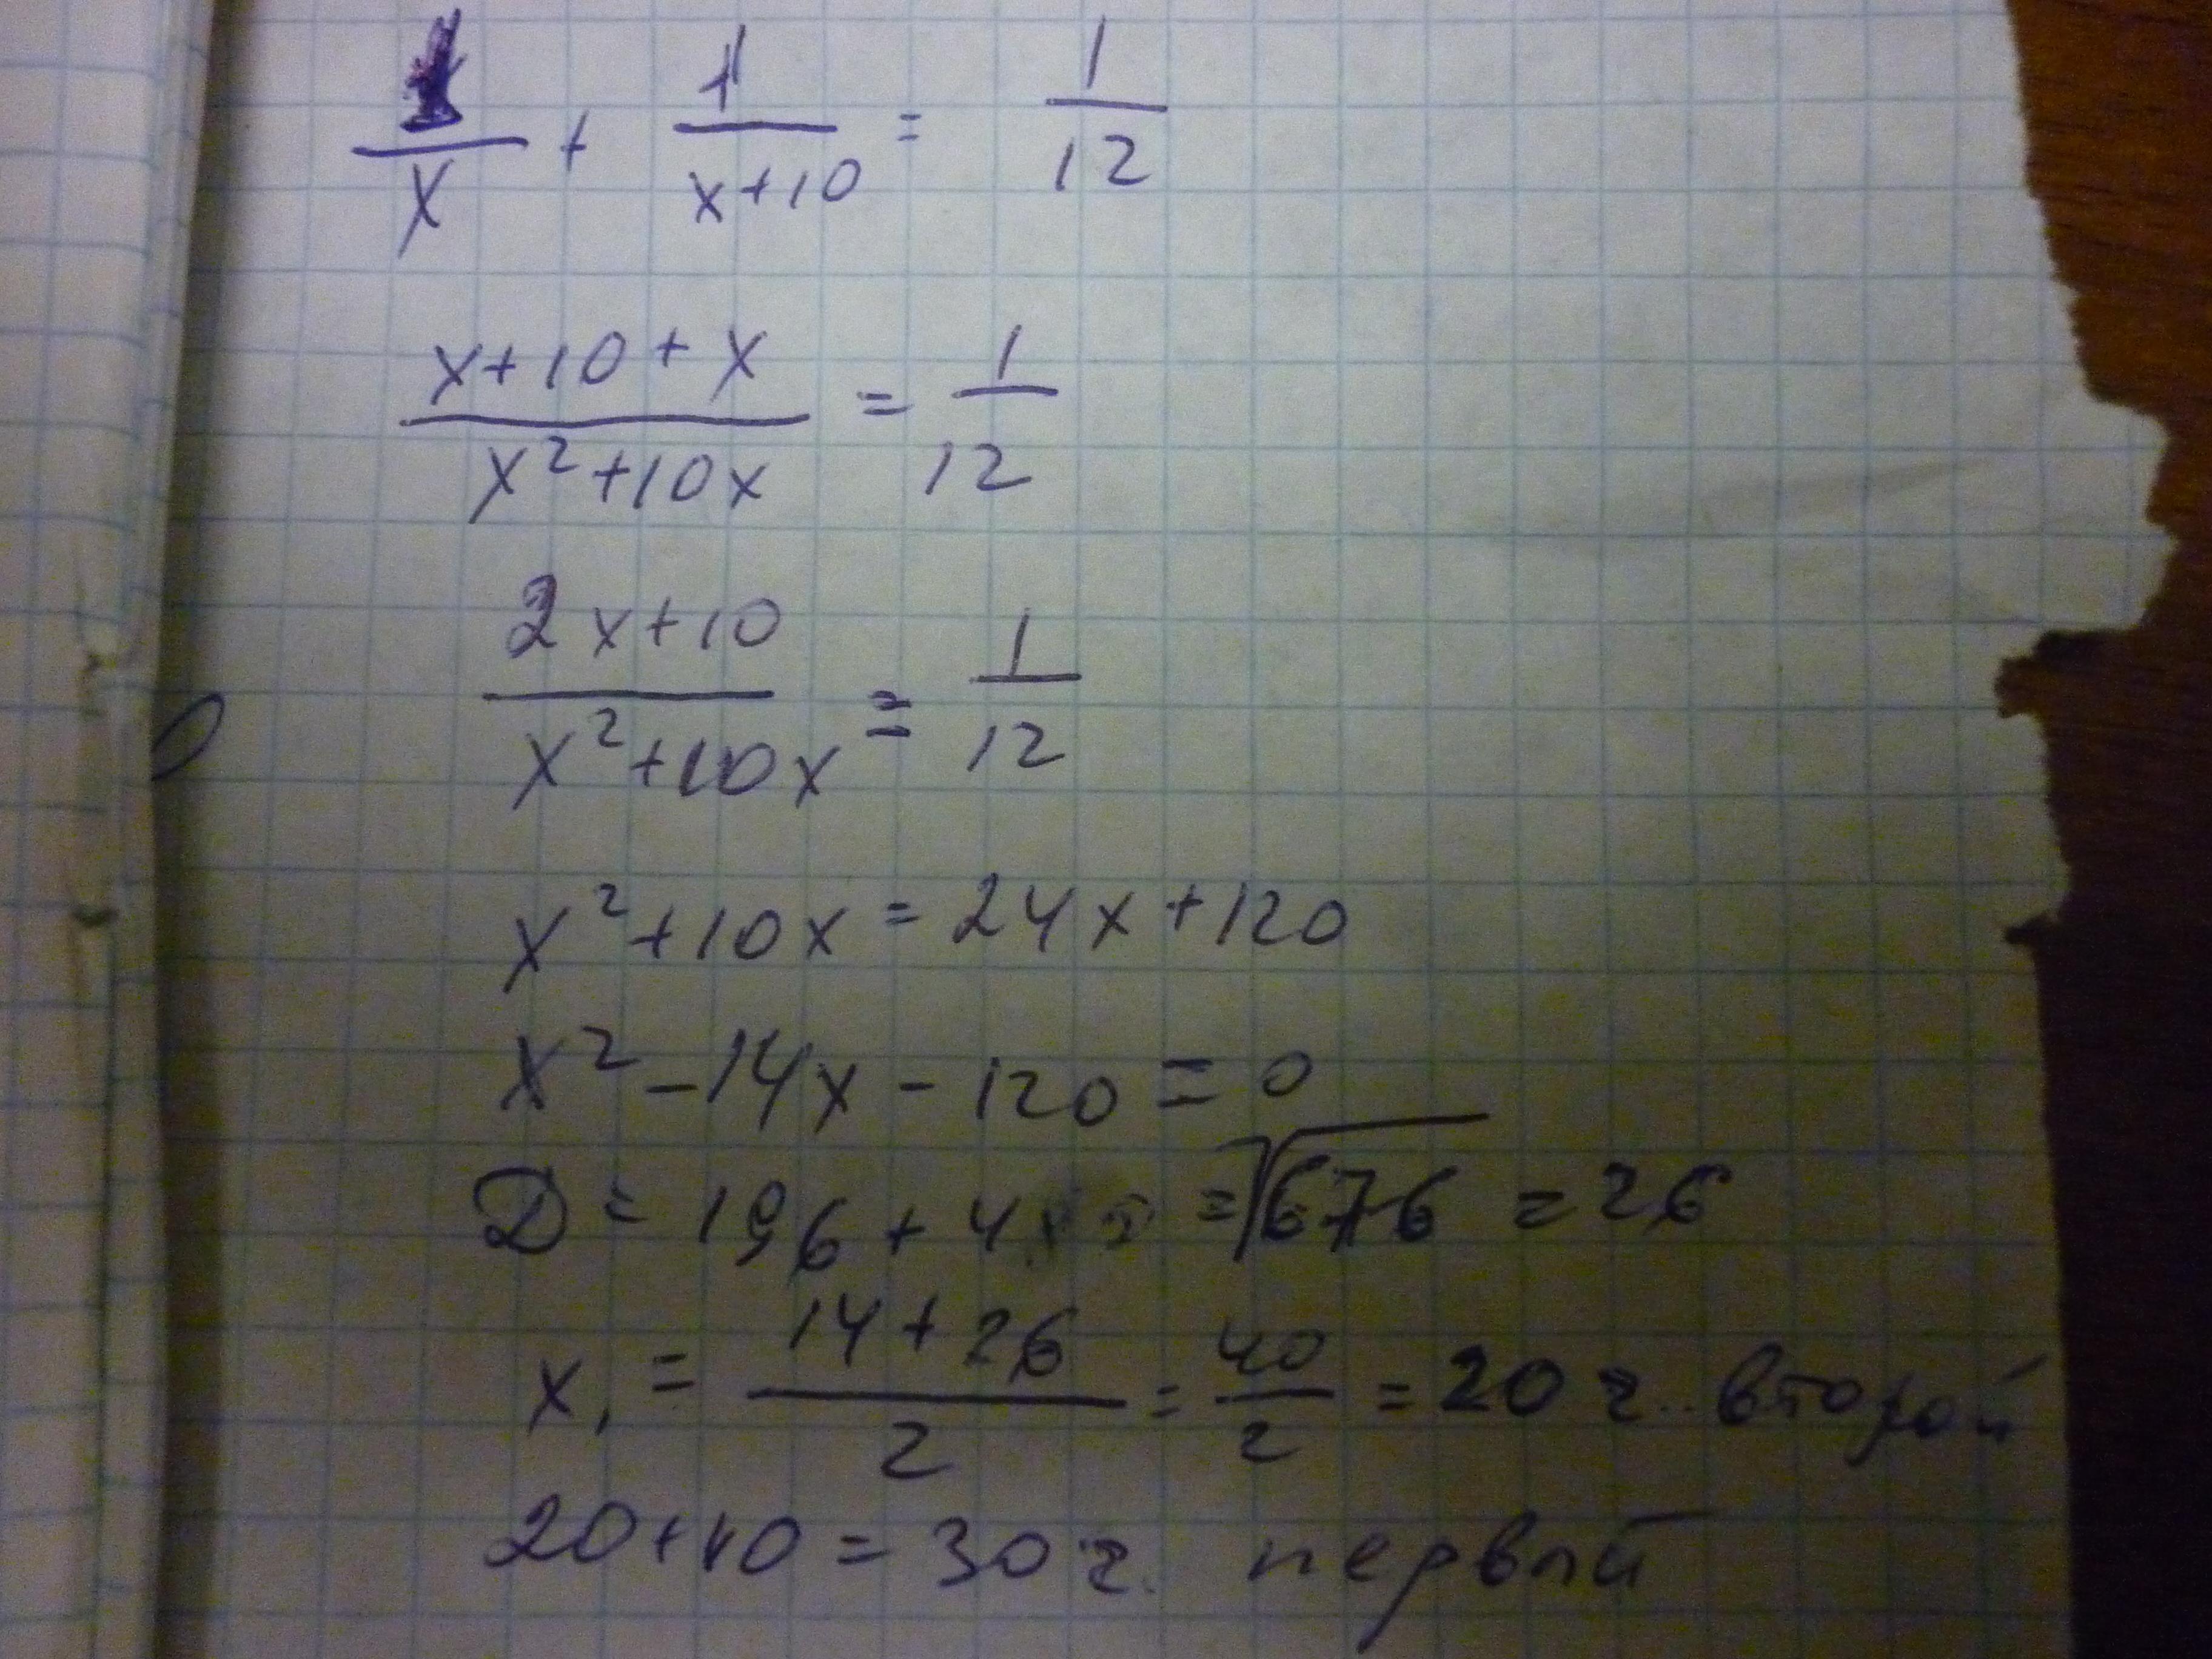 1/x + 1/(x+10) = 1/12
(x+10+x)/(x²+10x) = 1/12
(2x+10)/(x²+10x) = 1/12
x²+10x = 24x+120
x²-14x-120 = 0
D = 196 + 4 = √676 = 26
x₁ = (14+26)/2 = 40/2 = 20 ч. второй
20+10 = 30 ч. первый